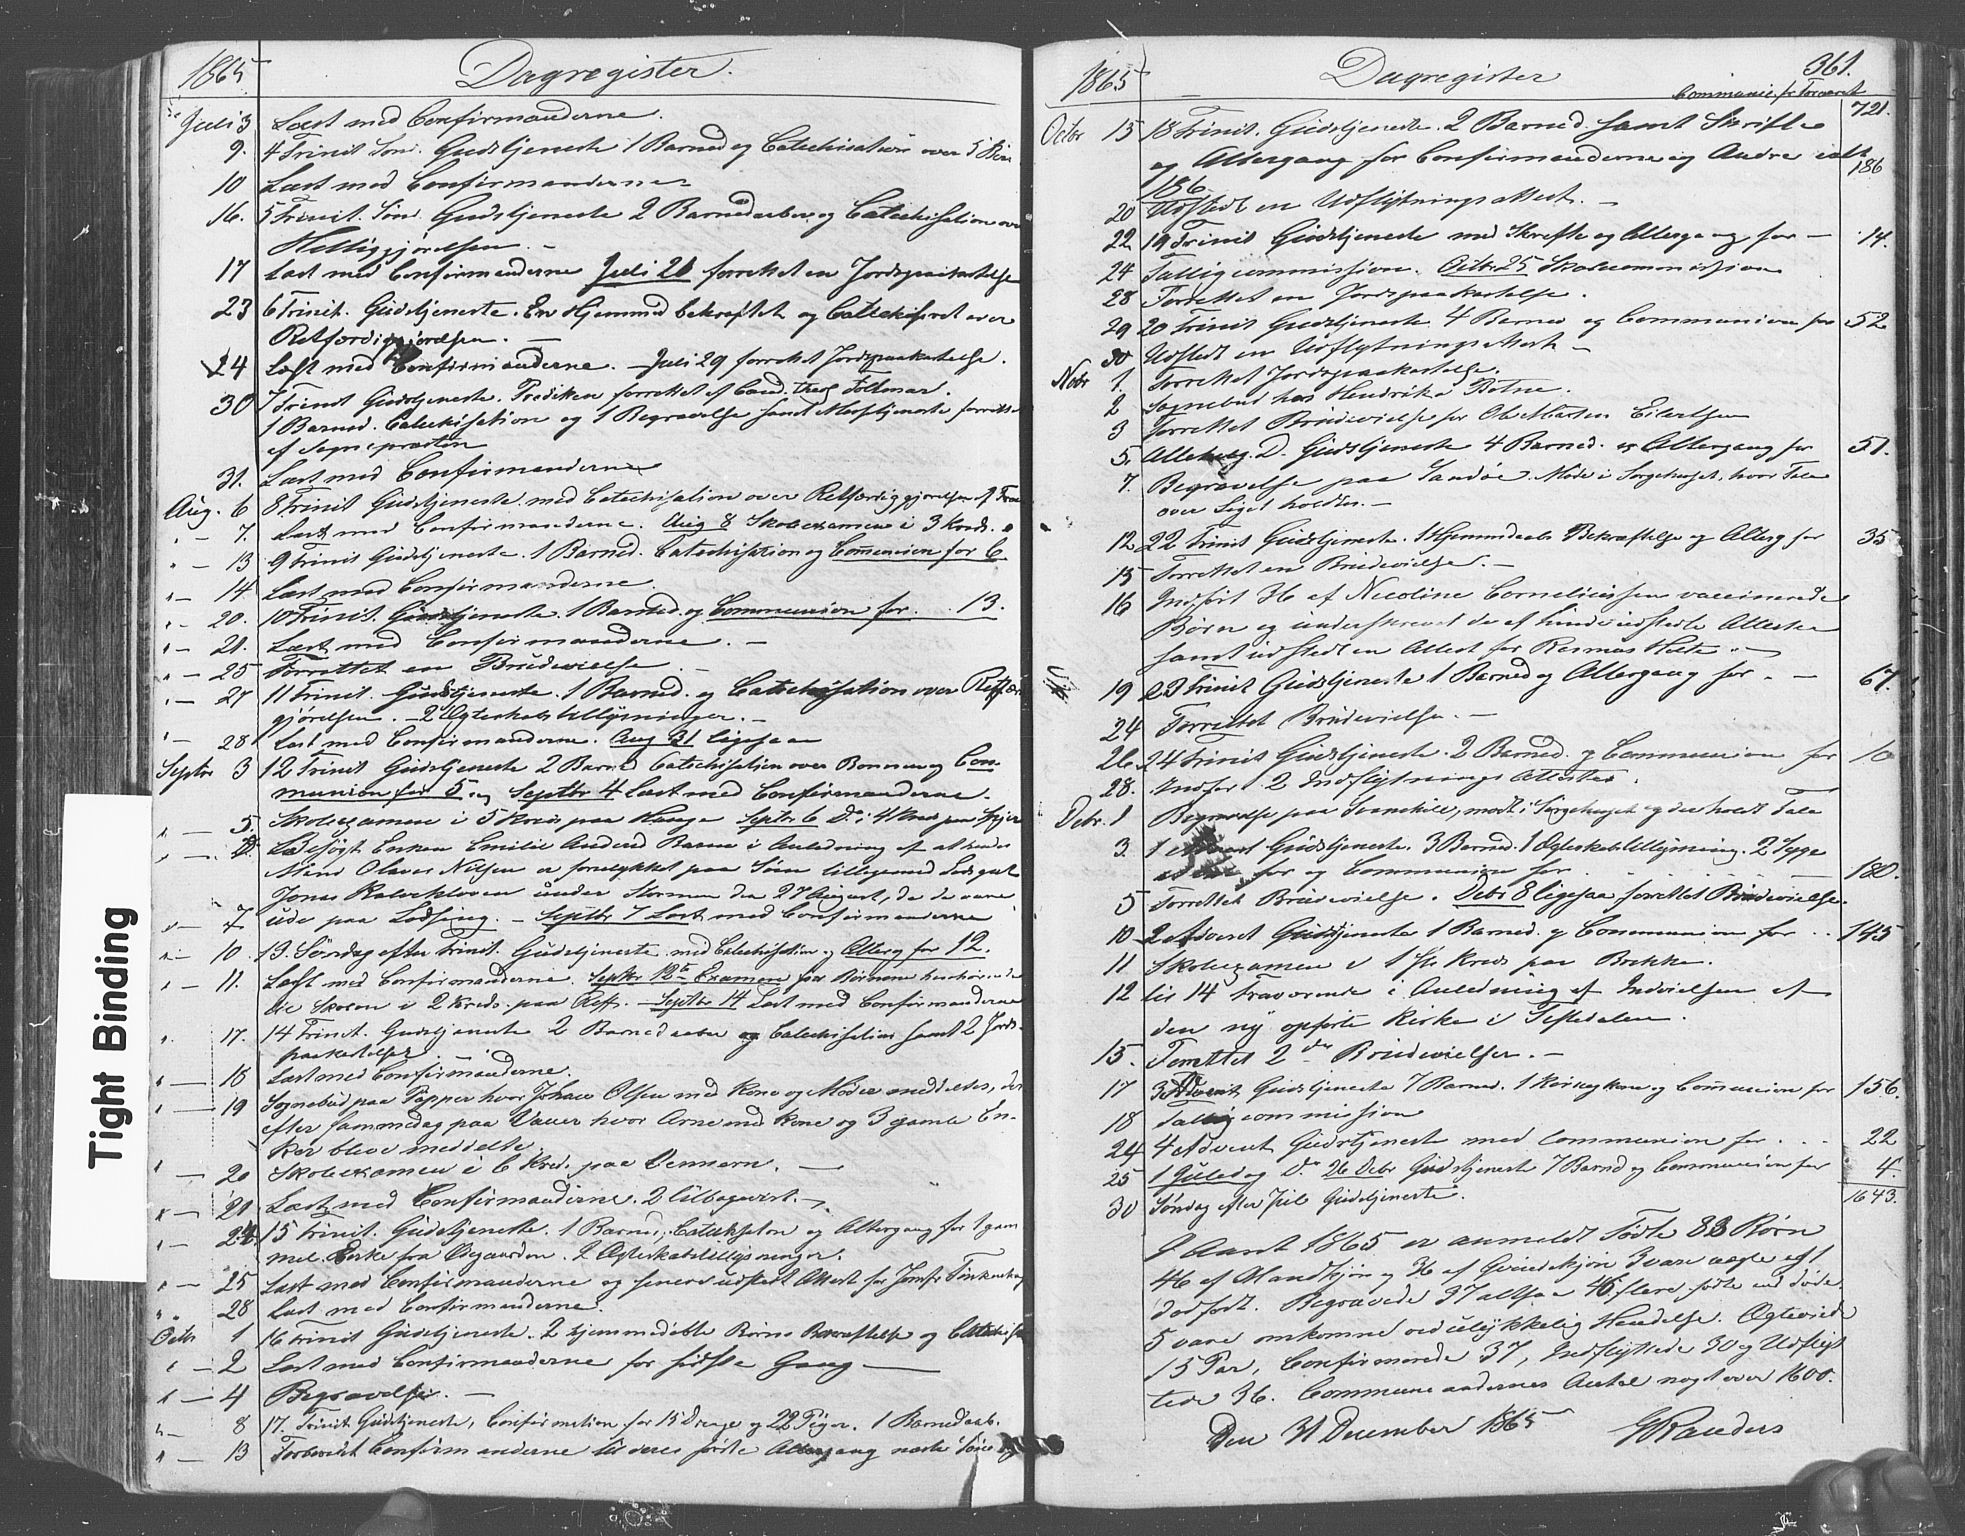 1865 Dagregister.
Juli 3 Læst med Confirmanderne.
9. 4 Trinit Sønd. Gudstjeneste 1 Barned og Catechisation over 5 Bøn
10 Læst med Confirmanderne
16. 5 Trinit. Sønd. Gudstjeneste 2 Barnedaaber og Catechisation over
Helliggjørelsen. –
17 Læst med Confirmanderne Juli 20 forrettet en Jordspaakastelse
23 6 Trinit. Gudstjeneste. En Hjemmed bekræftet og Catechiseret over
Retfærdiggjørelsen. –
24 Læst med Confirmanderne. – Juli 29 forrettet Jordspaakastelse.
30 7 Trinit Gudstjeneste. Prediken forrettet af Cand. theol Follmar.
1 Barned. Catechisation og 1 Begravelse samt Messetjeneste forrettet
af Sognepræsten
31. Læst med Confirmanderne
Aug. 6 8 Trinit Gudstjeneste med Catechisation over Retfærdiggjørelsen af
" – 7. Læst med Confirmanderne. Aug 8 Skoleexamen i 3 Kreds.
" – 13 9 Trinit Gudstjeneste. 1 Barned. Catechisation og Communion for 6
" – 14 Læst med Confirmanderne.
" – 20. 10 Trinit. Gudstjeneste. 1 Barned. og Communion for . . 13.
" – 21. Læst med Confirmanderne. –
" – 25 Forrettet en Brudevielse. –
" – 27 11 Trinit. Gudstjeneste. 1 Barned. og Catechisation over Retfærdig
gjørelsen. – 2 Ægteskabs tillysninger. –
" – 28 Læst med Confirmanderne. Aug 31 ligesaa
Septbr 3 12 Trinit Gudstjeneste 2 Barned Catechisation over Bønnen og Com-
munion for 5. og Septbr 4 Læst med Confirmanderne.
" – 5. Skoleexamen i 5 Kreds paa Hauge Septbr 6 Do i 4 Kreds paa
" – D. Besøgt Enken Emilie Anderd i Anledning af at hendes
Mand Olaves Nilsen er forulykket paa Søen tilligemed Lods
Jonas under Stormen den 27 August, da de vare
" – 7 ude paa Lodseng. – Septbr 7 Læst med Confirmanderne
" – 10. 13. Søndag efter Trinit. Gudstjeneste med Catechisation og Alterg for 12.
" – 11. Læst med Confirmanderne. Septbr 12te Examen for Børnene henhørende
til Skolen i 2 Kreds. paa Røff. – Septbr 14 Læst med Confirmanderne
" 17. 14 Trinit. Gudstjeneste 2 Barnedaaber og Catechisation samt 2 Jords-
paakastelser. –
" – 18 Læst med Confirmanderne.
" – 19 Sognebud paa Pepper hvor Johan Olsen med Kone og Moder meddeltes,
efter sammedag paa Vauer hvor Arne med Kone og 3 gamle En-
ker bleve meddelte.
" – 20 Skoleexamen i 6 Kred. paa Vennern. –
" – 21 Læst med Confirmanderne. 2 tilbageviist. –
" – 24. 15 Trinit. Gudstjeneste. 1 Barned, Catechisation og Altergang for 1 gam
mel Enke fra Ougaarden. 2 Ægteskabstillysninger.
" – 25 Læst med Confirmanderne og senere udstedt Attest for Jomfr
" " 28 Læst med Confirmanderne.
Octbr 1 16 Trinit Gudstjeneste. 2 hjemmedøbte Børns Bekræftelse og Catechisa
" – 2 Læst med Confirmanderne for sidste Gang –
" – 4 Begravelse. –
" – 8 17. Trinit Gudstjeneste, Confirmation for 15 Drenge og 22 Piger. 1 Barnedaab.
" – 13 Forberedt Confirmanderne til deres første Altergang næste Søndag
Tight Binding
1865 Dagregister 361.
Communic. fr Forrært
721.
Octbr 15 18 Trinit. Gudstjeneste. 2 Barned. samt Skrifte
og Altergang for Confirmanderne og Andre ialt 186
186.
20 Udstedt en Udflytningsattest. –
22 19 Trinit Gudstjeneste med Skrifte og Altergang for – 14.
24 Fattigcommission. Octbr 25 Skolecommission
28 Forrettet en Jordspaakastelse.
29 20 Trinit Gudstjeneste 4 Barned og Communion for 52
30 Udstedt en Udflytningsattest –
Nobr 1. Forrettet Jordspaakastelse.
2 Sognebud hos Hendrika Botne.
3 Forrettet Brudevielse for Ole Marten Eilertsen
5. Alleheg. D. Gudstjeneste 4 Barned. og Altergang for 51.
7. Begravelse paa Sandøe. Møde i Sørgehuset, hvor Tale
over Liget holdtes. –
12 22 Trinit Gudstjeneste. 1 Hjemmedaabs Bekræftelse og Alterg for 35
15 Forrettet en Brudevielse. –
16 Indført 36 af Nicoline Corneliussen vaccinerede
Børn og underskrevet de af hende udstedte Attester
samt udstedt en Attest for Rasmus Holte. –
19 23 Trinit Gudstjeneste 1 Barned og Altergang for . – 67.
24 Forrettet Brudevielse. –
26. 24 Trinit Gudstjeneste. 2 Barned. og Communion for 10
28. Indført 2 Indflytnings Attester.
Debr. 1 Begravelse paa mødt i Sørgehuset og der holdt Tale
3. 1 Advent Gudstjeneste. 3 Barned. 1 Ægteskabstillysning. 2 Syge
for og Communion for 180.
5 Forrettet Brudevielse. Debr 8 ligesaa forrettet Brudevielse.
10 2 Advent Gudstjeneste 1 Barned. og Communion for . . 145
11 Skoleexamen i 1ste Kreds paa Brekke.
12 til 14 Fraværende i Anledning af Indvielsen af
den ny opførte Kirke i Fiksdalen.
15. Forrettet 2de Brudevielser. –
17 3 Advent Gudstjeneste 7 Barned. 1 Kirkegkone og Communion for 156.
18 Fattigcommission
24 4 Advent Gudstjeneste med Communion for . . . 22
25 1 Juledag Do 26 Debr Gudstjeneste 7 Barned og Communion for 4.
30 Søndag efter Jul Gudstjeneste. 1643.
I Aaret 1865 er anmeldt Fødte 83 Børn
46 af Mandkjøn og 36 af Qvindekjøn 3 vare uægte og 1
dødfødt. Begravede 37 altsaa 46 flere fødte end døde.
5 vare omkomne ved ulykkelig Hændelse. Ægteviede
15 Par, Confirmerede 37, Indflyttede 30 og Udflyt
tede 36. Communicanternes Antal noget over 1600.
Den 31 December 1865 Randers